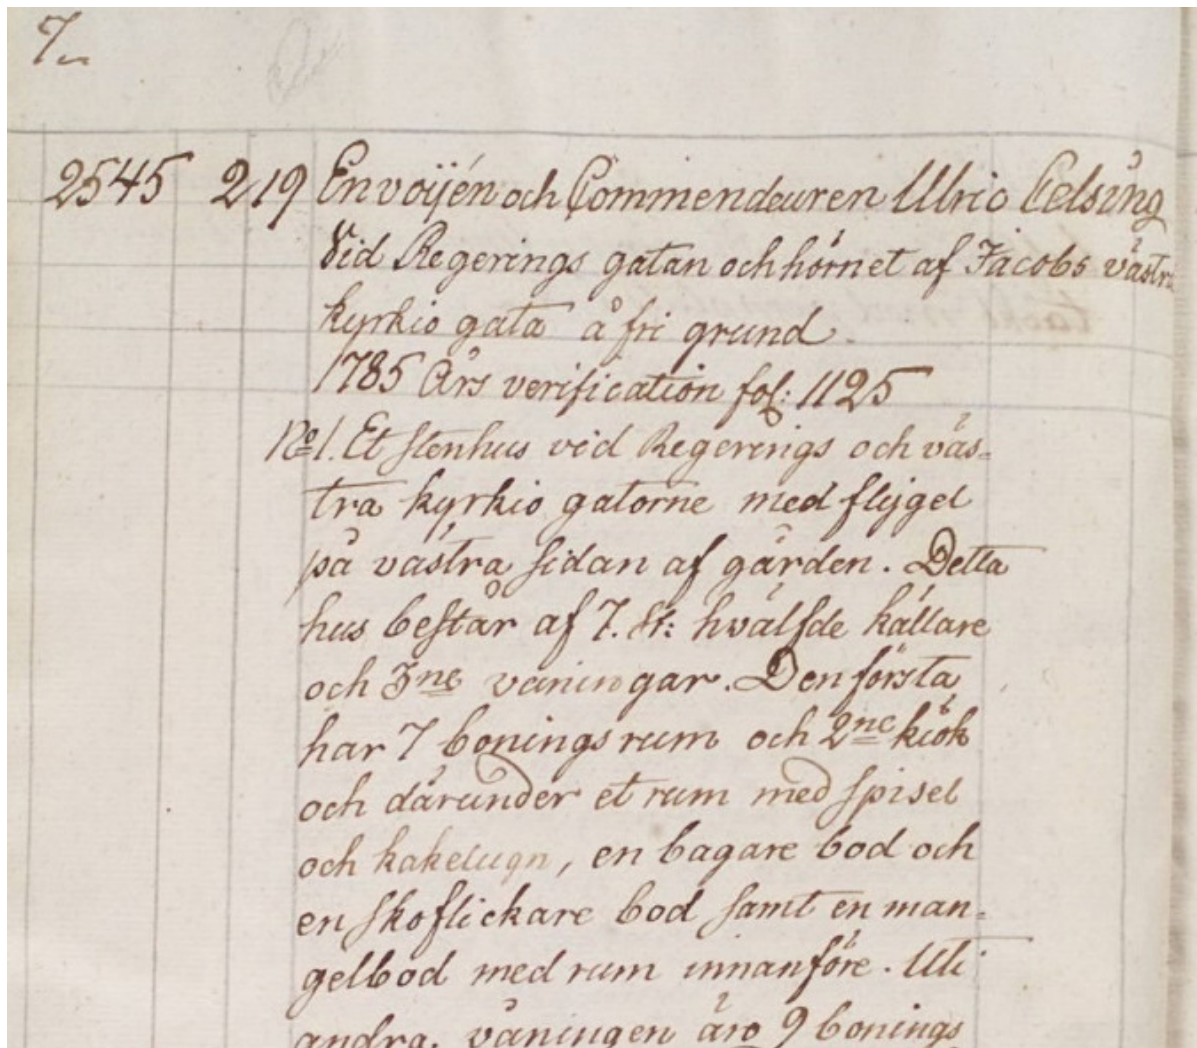 7
2545 219 Envoijén och Commendeuren Ulric Celsing
Vid Regerings gatan och hörnet af Jacobs västra
kyrkio gata å fri grund
1785 Års verification fol: 1125
No 1. Et stenhus vid Regerings och väs-
tra kyrkio gatorne med flygel
på västra sidan af gården. Detta
hus består af 7. st: hvälfde källare
och 3ne våningar. Den första
har 7 bonings rum och 2ne kiök
och därunder et rum med spisel
och kakelugn, en bagare bod och
en skoflickare bod samt en man-
gelbod med rum innanföre. Uti
andra våningen äro 9 bonings